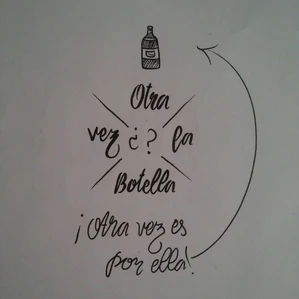 Otra
vez ¿? la
Botella
¡Otra vez es
por ella!